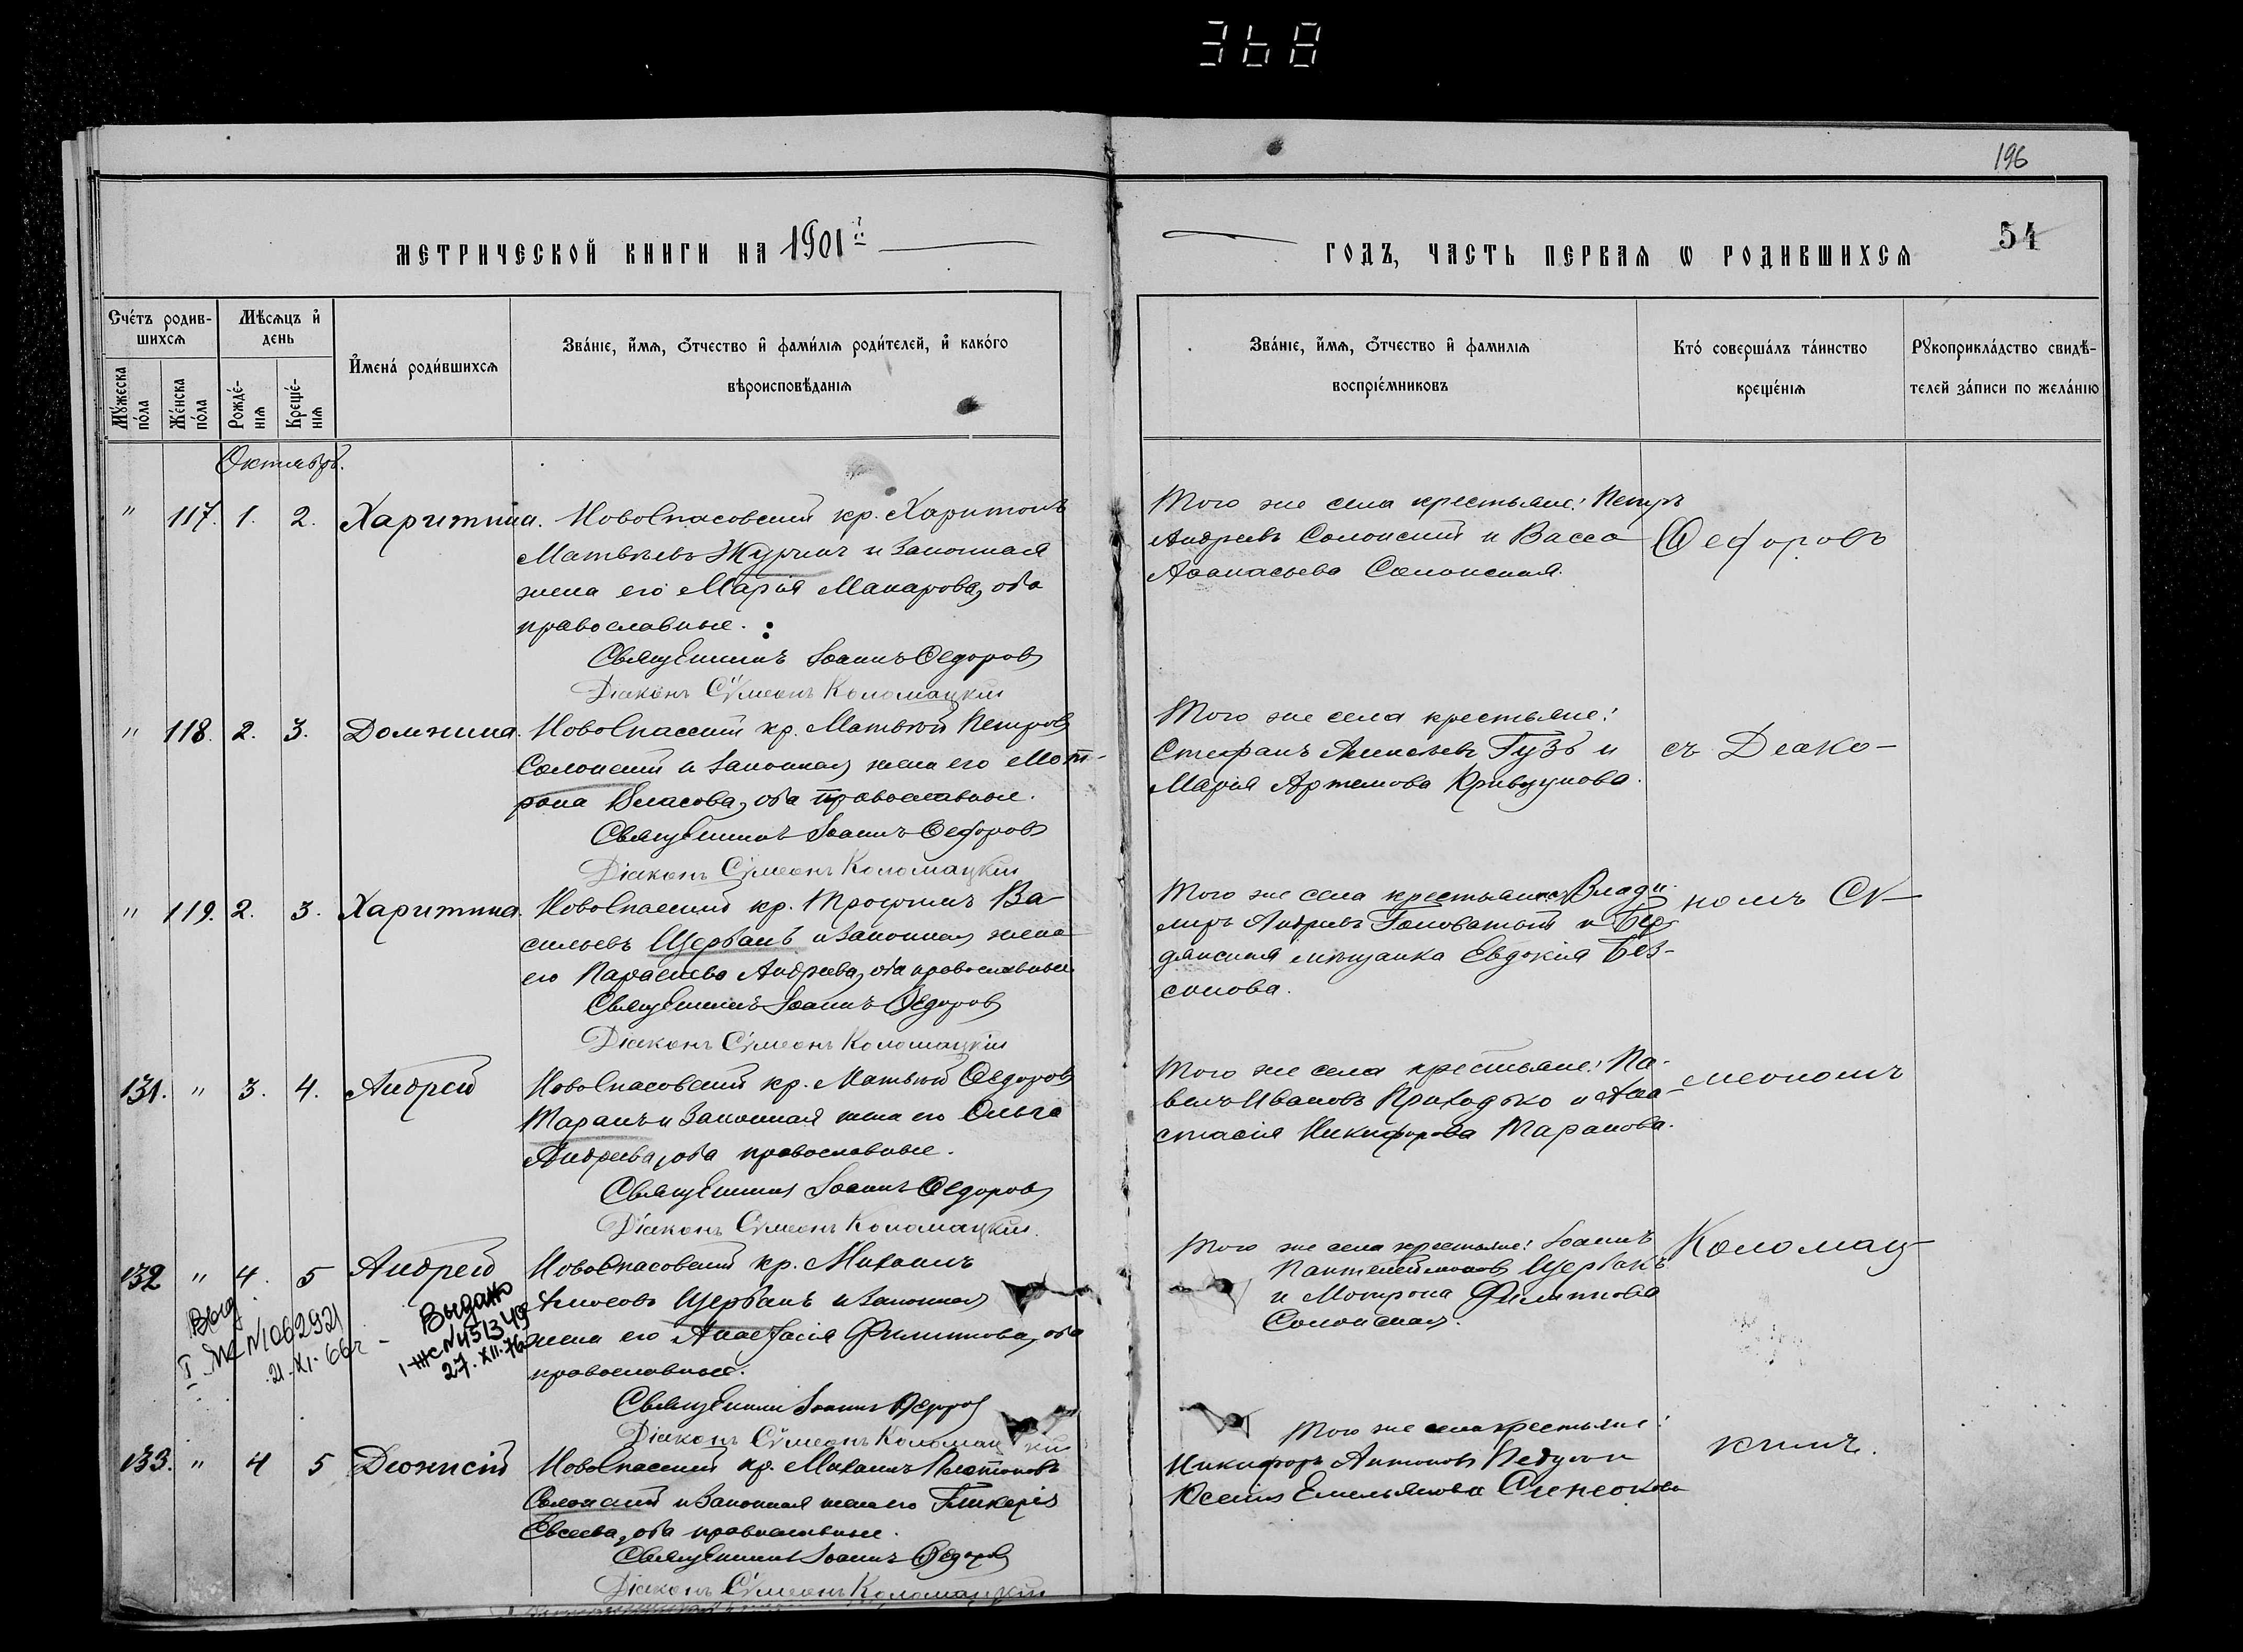 368
196
54
МЕТРИЧЕСКОЙ КНИГИ НА 1901й
ГОДЪ, ЧАСТЬ ПЕРВАЯ Ѡ РОДИВШИХСЯ
Счетъ родив-
шихся
Мѣсяцъ и
день
Мужеска
пола
Женска
пола
Рожде-
нія
Креще-
нія
Имена родившихся
Званіе, имя, отчество и фамилія родителей, и какого
вѣроисповѣданія
Званіе, имя, отчество и фамилія
воспріемниковъ
Кто совершалъ таинство
крещенія
Рукоприкладство свидѣ-
телей записи по желанію
Октябрь.
" 117. 1. 2. Харитина. НовоСпасовский кр. Харитонъ
Матвѣевъ Журжил и законная
жена его Марія Макарова, оба
православные.
Священникъ Іоаннъ Ѳедоровъ
Діаконъ Сѵмеонъ Коломацкій
Того же села крестьяне: Петръ
Андреевъ Солонский и Васса
Аѳанасьева Солонская.
Ѳедоровъ
" 118. 2. 3. Домнина. НовоСпасский кр. Матвѣй Петровъ
Солонский и законная жена его Мот-
рона Власова, оба православные.
Священникъ Іоаннъ Ѳедоровъ
Діаконъ Сѵмеонъ Коломацкій
Того же села крестьяне:
Стефанъ Алексѣевъ Гузь и
Марія Артемова Кривцунова.
съ Діако-
" 119. 2. 3. Харитина. НовоСпаский кр. Трофимъ Ва-
сильевъ Щербакъ и законная жена
его Параскева Андреева, оба православные.
Священникъ Іоаннъ Ѳедоровъ
Діаконъ Сѵмеонъ Коломацкій
Того же села крестьянинъ Влади-
миръ Андреевъ Головатый и Бер-
дянская мѣщанка Евдокія Без-
сонова.
номъ Сѵ-
131. " 3. 4. Андрей НовоСпасовский кр. Матвѣй Ѳедоровъ
Таранъ и законная жена его Ольга
Андреева, оба православные.
Священникъ Іоаннъ Ѳедоровъ
Діаконъ Сѵмеонъ Коломацкій.
Того же села крестьяне: Па-
велъ Ивановъ Приходько и Ана-
стасія Никифорова Таранова.
меономъ
132 " 4. 5 Андрей НовоСпасовский кр. Михаилъ
Амосовъ Щербакъ и законная
жена его Анастасія Филиппова, оба
православные.
Священникъ Іоаннъ Ѳедоровъ
Діаконъ Сѵмеонъ Коломацкій
Того же села крестьяне: Іоаннъ
Пантелеймоновъ Щербакъ
и Мотрона Филиппова
Солонская.
Коломац-
Выд
I ЖС N1062921
21.XI.66г
Выдано
I-ЖС N451349
27.XII.76
133. " 4 5 Діонисій НовоСпаский кр. Михаилъ Платоновъ
Солонский и законная жена его Гликерія
Евсеева, оба православные.
Священникъ Іоаннъ Ѳедоровъ
Діаконъ Сѵмеонъ Коломацкій
Того же села крестьяне:
Никифоръ Антоновъ
Ксенія Емельянова
кимъ.